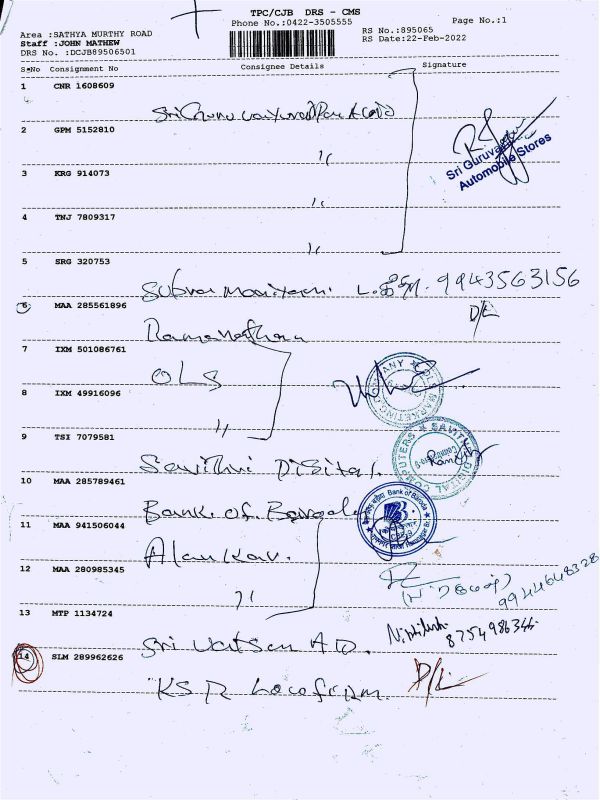 TPC/CJB DRS - CMS
Phone No.:0422-3505555
Page No.:1
Area :SATHYA MURTHY ROAD
RS No.:895065
Staff :JOHN MATHEW
RS Date:22-Feb-2022
DRS No. :DCJB89506501
S.No Consignment No Consignee Details Signature
1 CNR 1608609
2 GPM 5152810
Sri Guruvayur
Automobile Stores
3 KRG 914073
4 TNJ 7809317
5 SRG 320753
9943563156
6 MAA 285561896
D/L
Ramanathan
7 IXM 501086761
OLS
MARKETING COMPANY
8 IXM 49916096
9 TSI 7079581
Savithri Digital
SAVITHRI DIGITAL COMPUTERS
10 MAA 285789461
Bank of Baroda
Bank of Baroda
11 MAA 941506044
Alankar.
12 MAA 280985345
9944648328
13 MTP 1134724
Sri Vatsan
8754986346
14 SLM 289962626
D/L
KSR